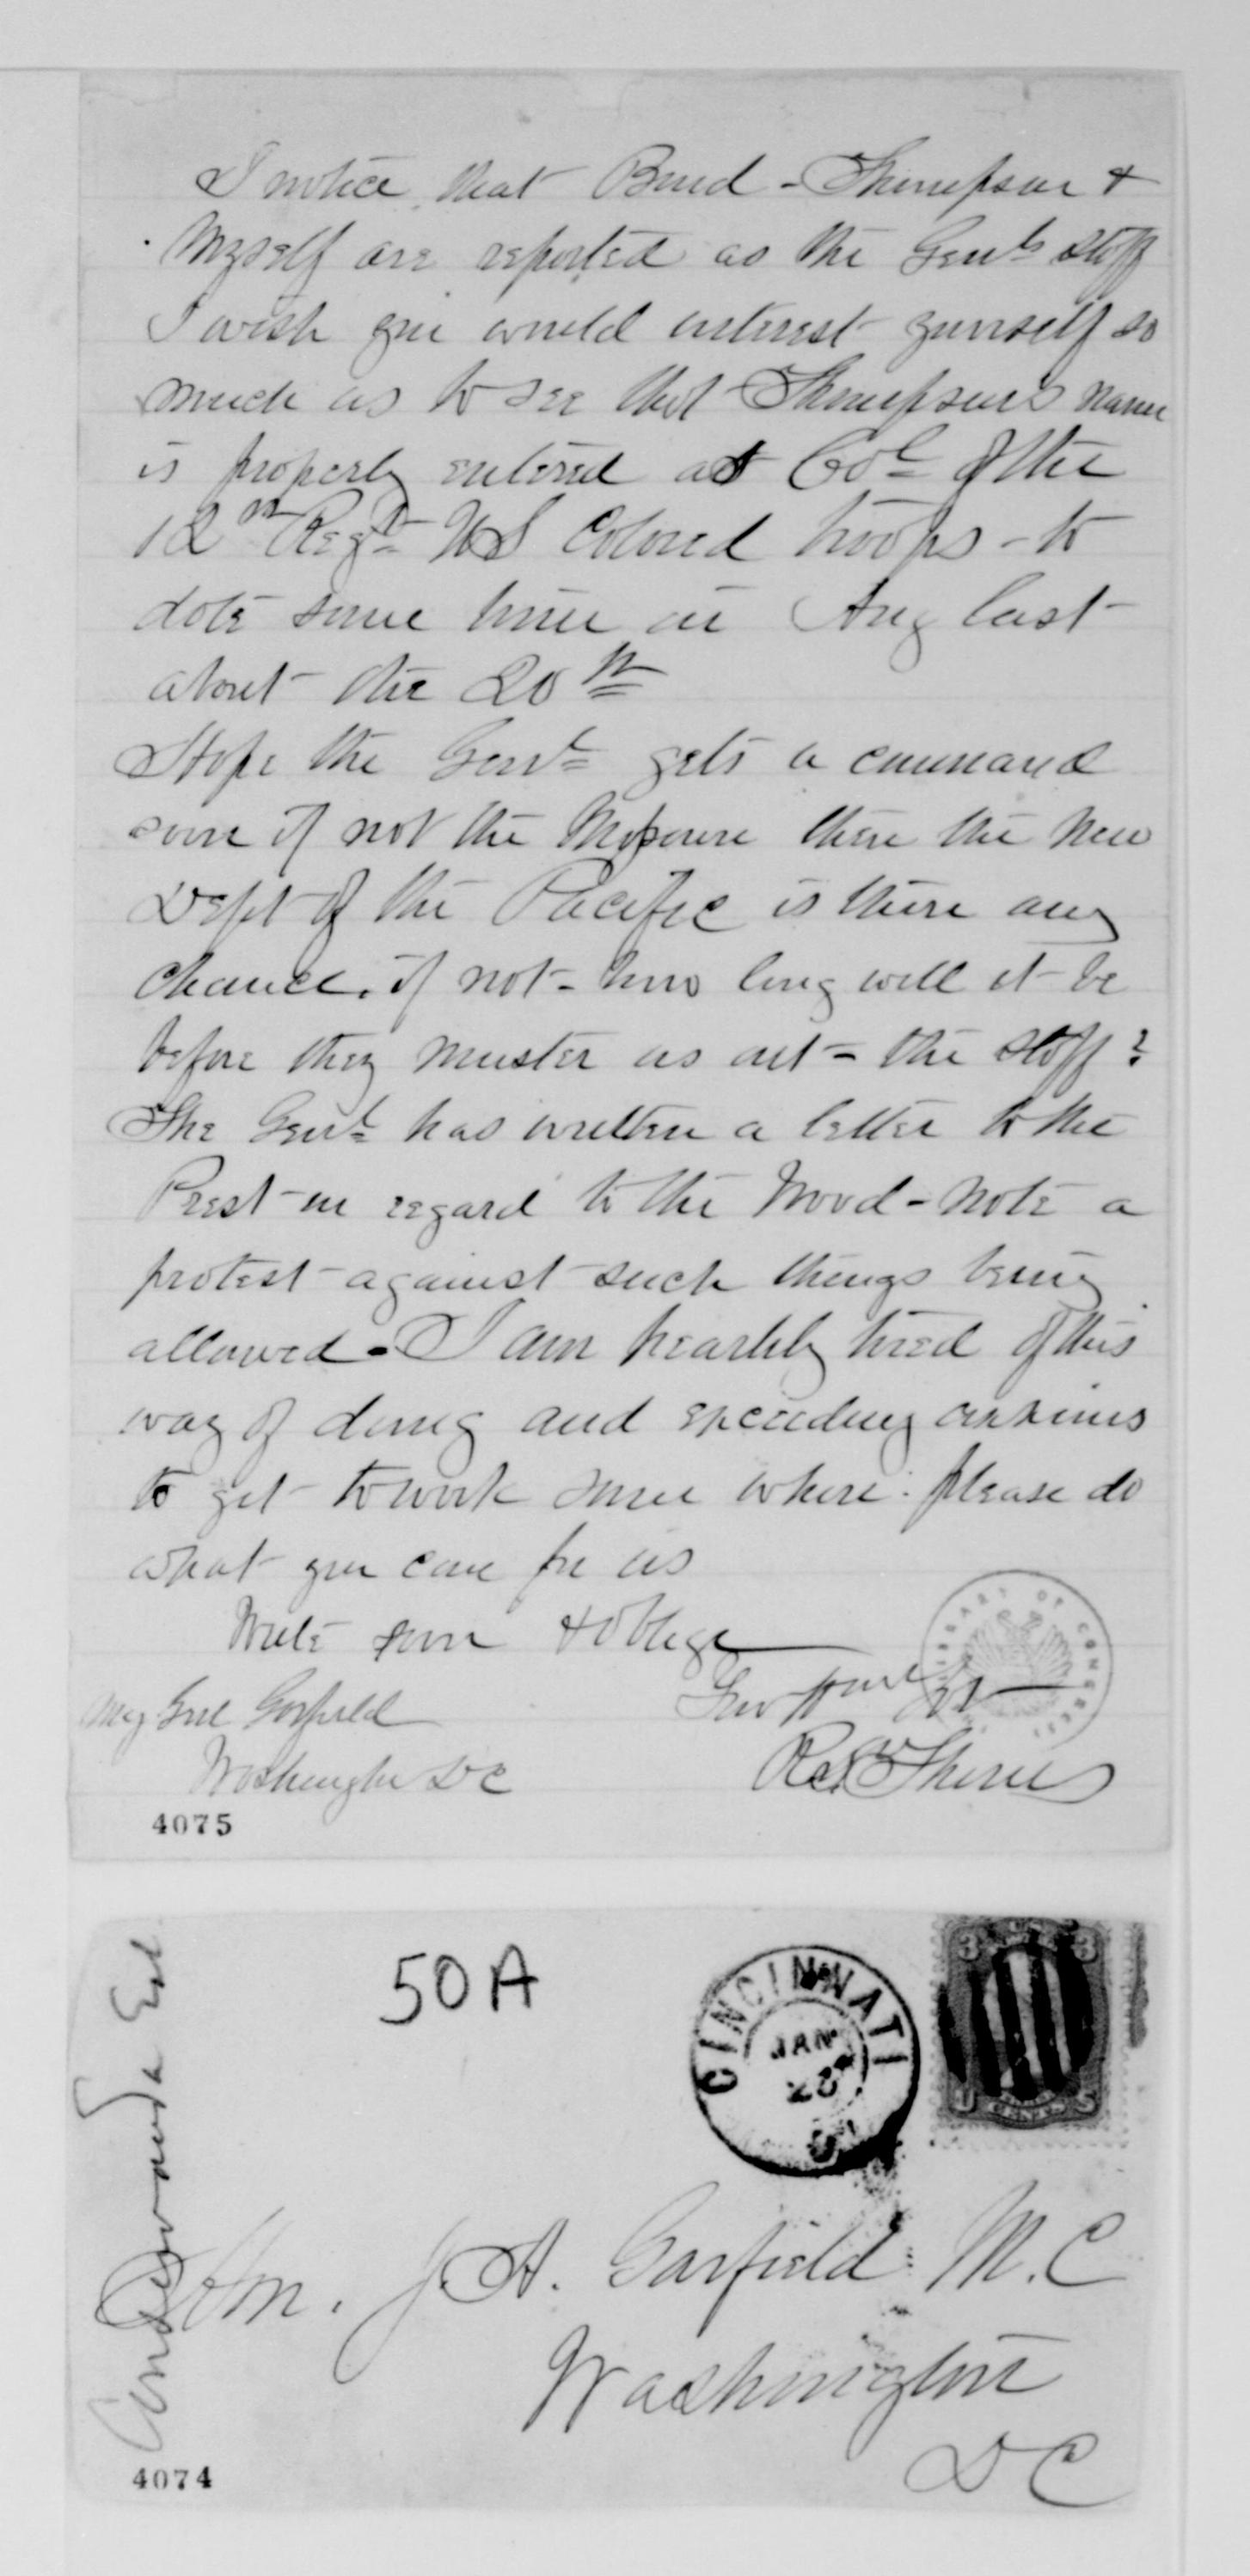 I notice that Bond - Thompson &
Myself are reported as the Genls staff
I wish you would interest yourself so
much as to see that Thompsons name
is properly entered as Col of the
12th Regt US Colored troops - to
date some time in Aug last
about the 20th
Hope the Genl gets a command
soon if not the Missouri then the New
Dept of the Pacific is there any
chance. if not - how long will it be
before they muster us out - the staff?
The Genl has written a letter to the
Prest in regard to the Wood - note a
protest against such things being
allowed - I am heartily tired of this
way of doing and exceeding anxious
to get to work some where. please do
what you can for us
Write soon & oblige
Maj Genl Garfield
Washington DC
R S Thoms
LIBRARY OF CONGRESS
4075
50A
CINCINNATI
JAN
3 3
U CENTS S
Hon. J. A. Garfield M.C
Washington
DC
4074